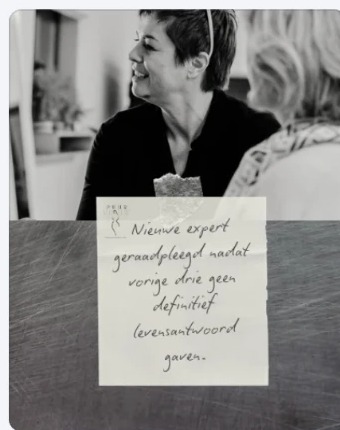 Nieuwe expert
geraadpleegd nadat
vorige drie geen
definitief
levensantwoord
gaven.